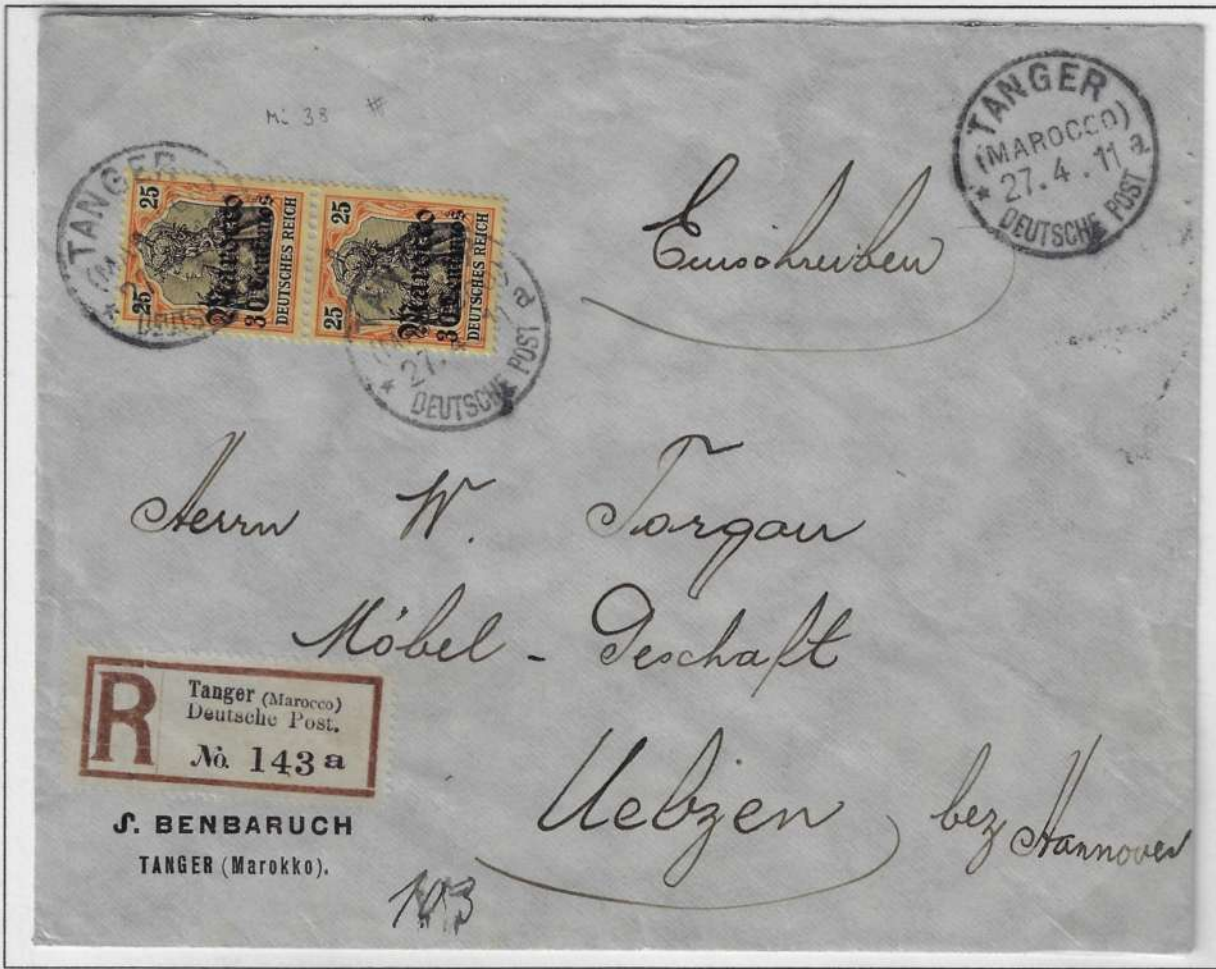 Mi 38 #
TANGER
(MAROCCO)
27.4.11 a
* DEUTSCHE POST
TANGER
25 25 Marocco 30 Centimos DEUTSCHES REICH
25 25 Marocco 30 Centimos DEUTSCHES REICH
27.
a
* DEUTSCHE POST
Einschreiben
Herrn W. Torgau
Möbel - Geschaft
Uelzen bez Hannover
R
Tanger (Marocco)
Deutsche Post.
No. 143 a
S. BENBARUCH
TANGER (Marokko).